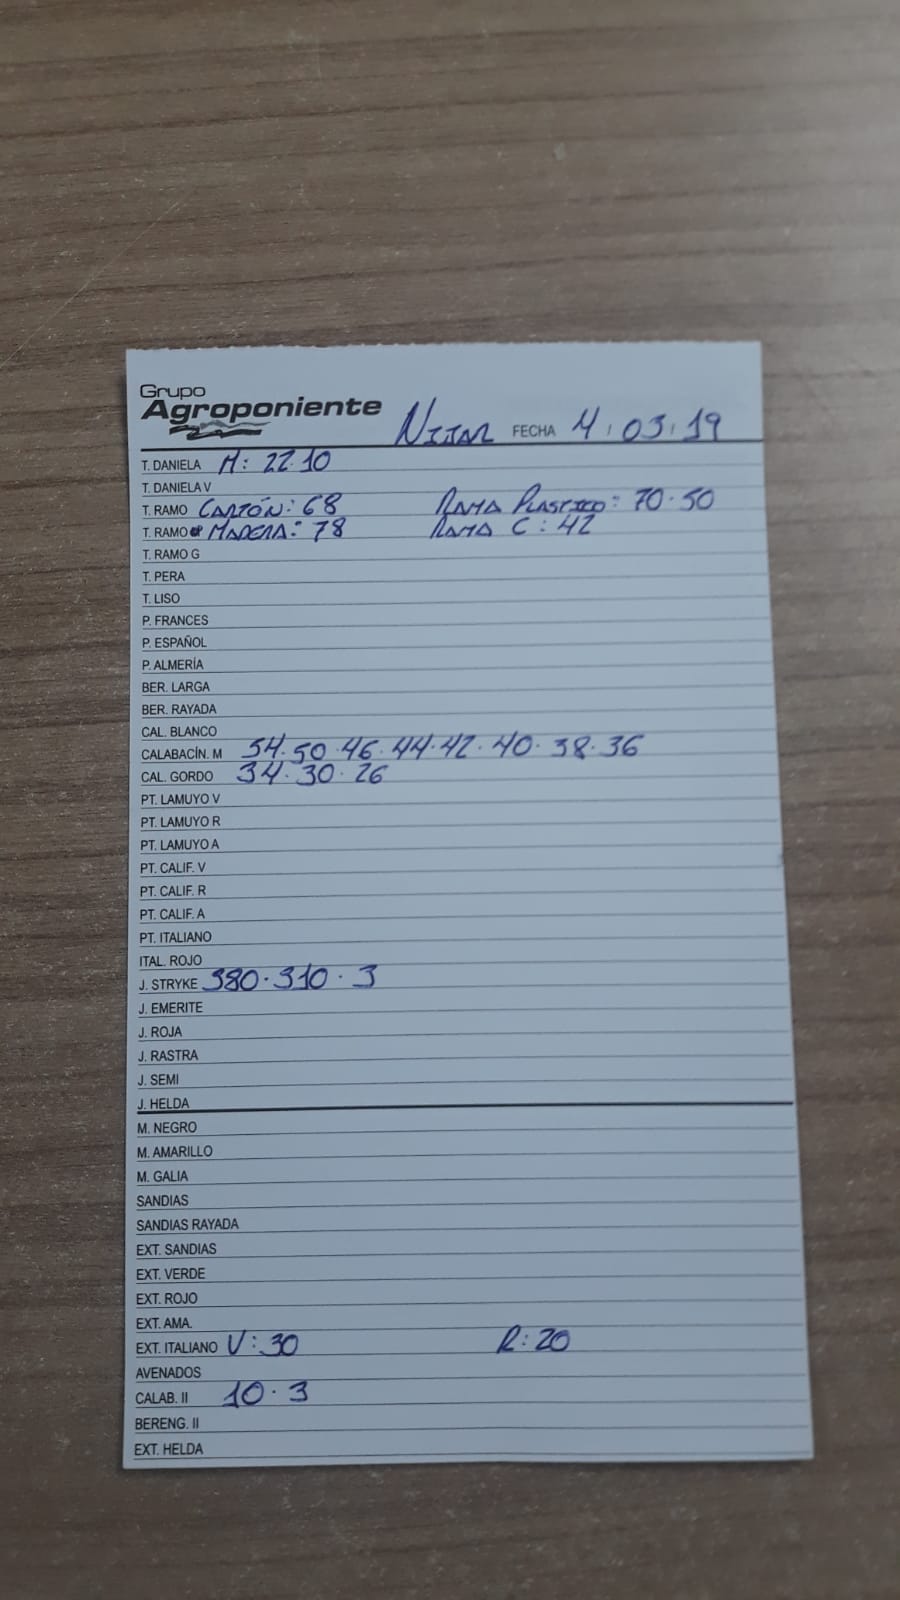 Grupo
Agroponiente
NIJAR FECHA 4 / 03 / 19
T. DANIELA M: 22·10
T. DANELA V
T. RAMO CARTÓN: 68 RAMA PLASTICO: 70·50
T. RAMO MADERA: 78 RAMA C: 42
T. RAMO G
T. PERA
T. LISO
P. FRANCES
P. ESPAÑOL
P. ALMERÍA
BER. LARGA
BER. RAYADA
CAL. BLANCO
CALABACÍN. M 54·50·46·44·42·40·38·36
CAL. GORDO 34·30·26
PT. LAMUYO V
PT. LAMUYO R
PT. LAMUYO A
PT. CALIF. V
PT. CALIF. R
PT. CALIF. A
PT. ITALIANO
ITAL. ROJO
J. STRYKE 380·310·3
J. EMERITE
J. ROJA
J. RASTRA
J. SEMI
J. HELDA
M. NEGRO
M. AMARILLO
M. GALIA
SANDIAS
SANDIAS RAYADA
EXT. SANDIAS
EXT. VERDE
EXT. ROJO
EXT. AMA.
EXT. ITALIANO V: 30 R: 20
AVENADOS
CALAB. II 10·3
BERENG. II
EXT. HELDA